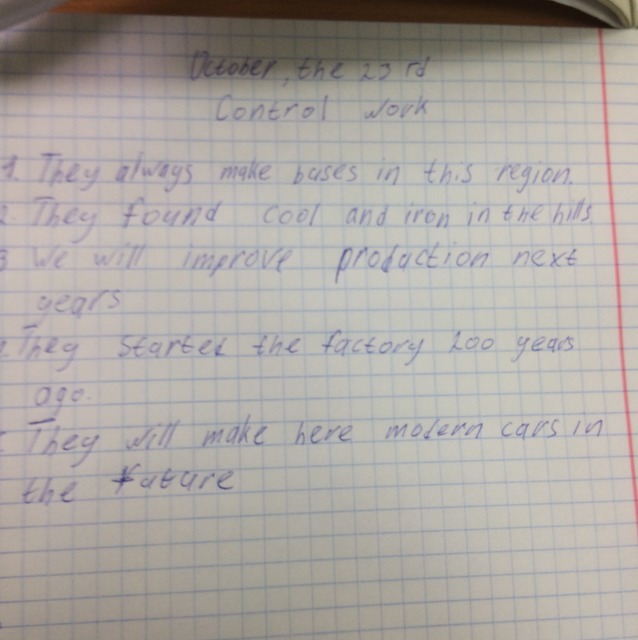 October, the 23rd
Control work
1. They always make buses in this region.
2. They found cool and iron in the hills
3 We will improve prodaction next
years
They started the factory 200 years
ago.
They will make here modern cars in
the future